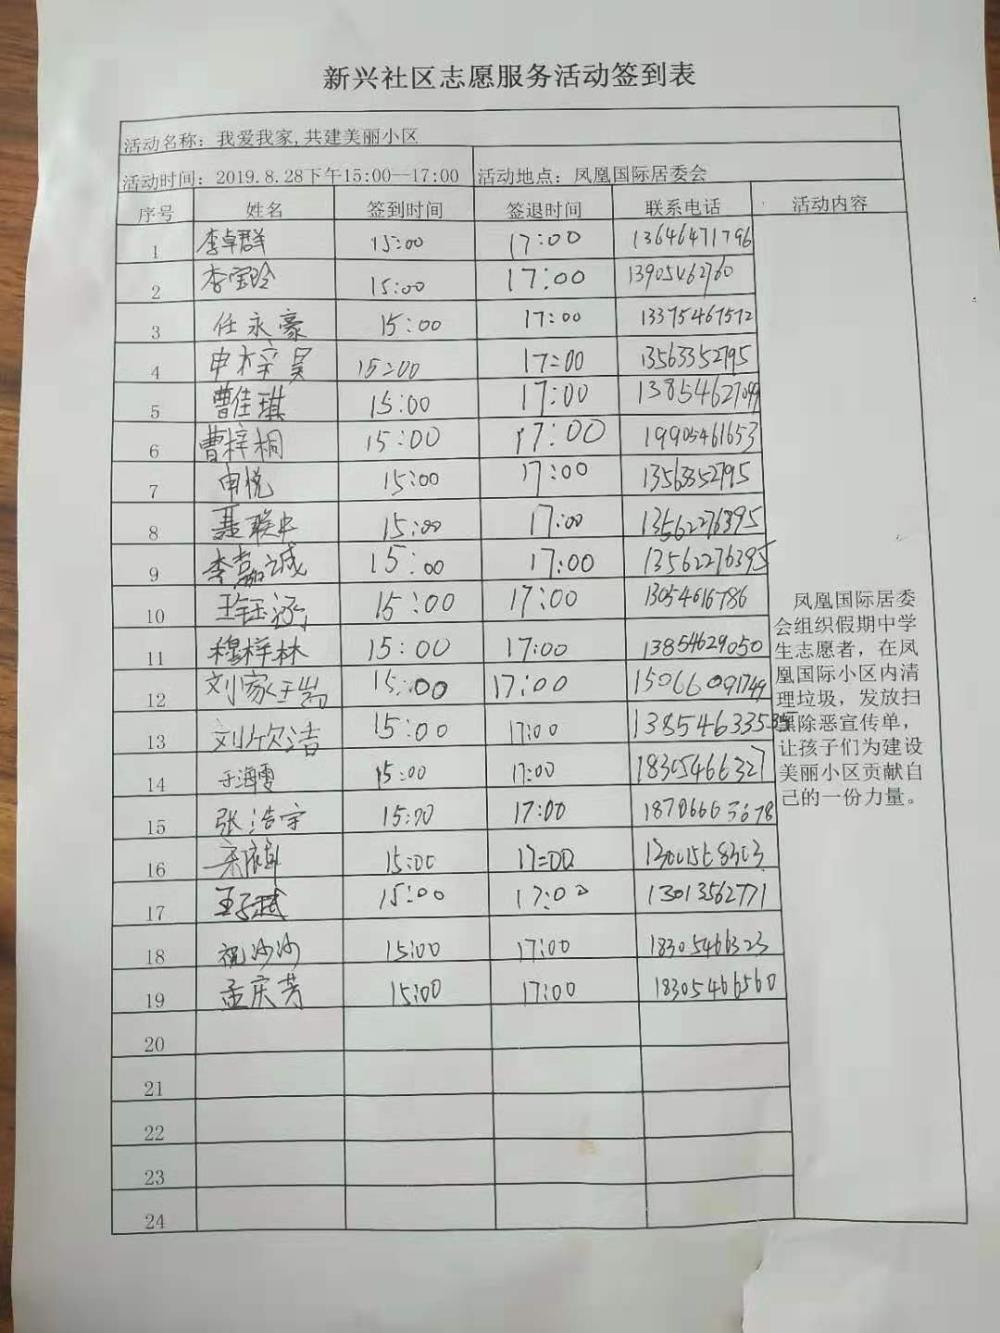 新兴社区志愿服务活动签到表
活动名称：我爱我家,共建美丽小区
活动时间：2019.8.28下午15:00--17:00 活动地点：凤凰国际居委会
序号 姓名 签到时间 签退时间 联系电话 活动内容
1 李卓群 15:00 17:00 13646471796
2 李宝玲 15:00 17:00 13905462760
3 任永豪 15:00 17:00 13375467572
4 申梓昊 15:00 17:00 13563352795
5 曹佳琪 15:00 17:00 13854627099
6 曹梓桐 15:00 17:00 19905461653
7 申悦 15:00 17:00 13563352795
8 聂联中 15:00 17:00 13562276395
9 李嘉诚 15:00 17:00 13562276395
10 15:00 17:00 13054616786
11 穆梓林 15:00 17:00 13854629050
12 15:00 17:00 15066091749
13 刘欣洁 15:00 17:00
14 于海雪 15:00 17:00 18305466327
15 张浩宇 15:00 17:00 18706663678
16 15:00 17:00 13001568303
17 王子斌 15:00 17:00 13013562771
18 祝沙沙 15:00 17:00 18305466323
19 孟庆芳 15:00 17:00 18305466560
20
21
22
23
24
凤凰国际居委
会组织假期中学
生志愿者，在凤
凰国际小区内清
理垃圾，发放扫
黑除恶宣传单，
让孩子们为建设
美丽小区贡献自
己的一份力量。